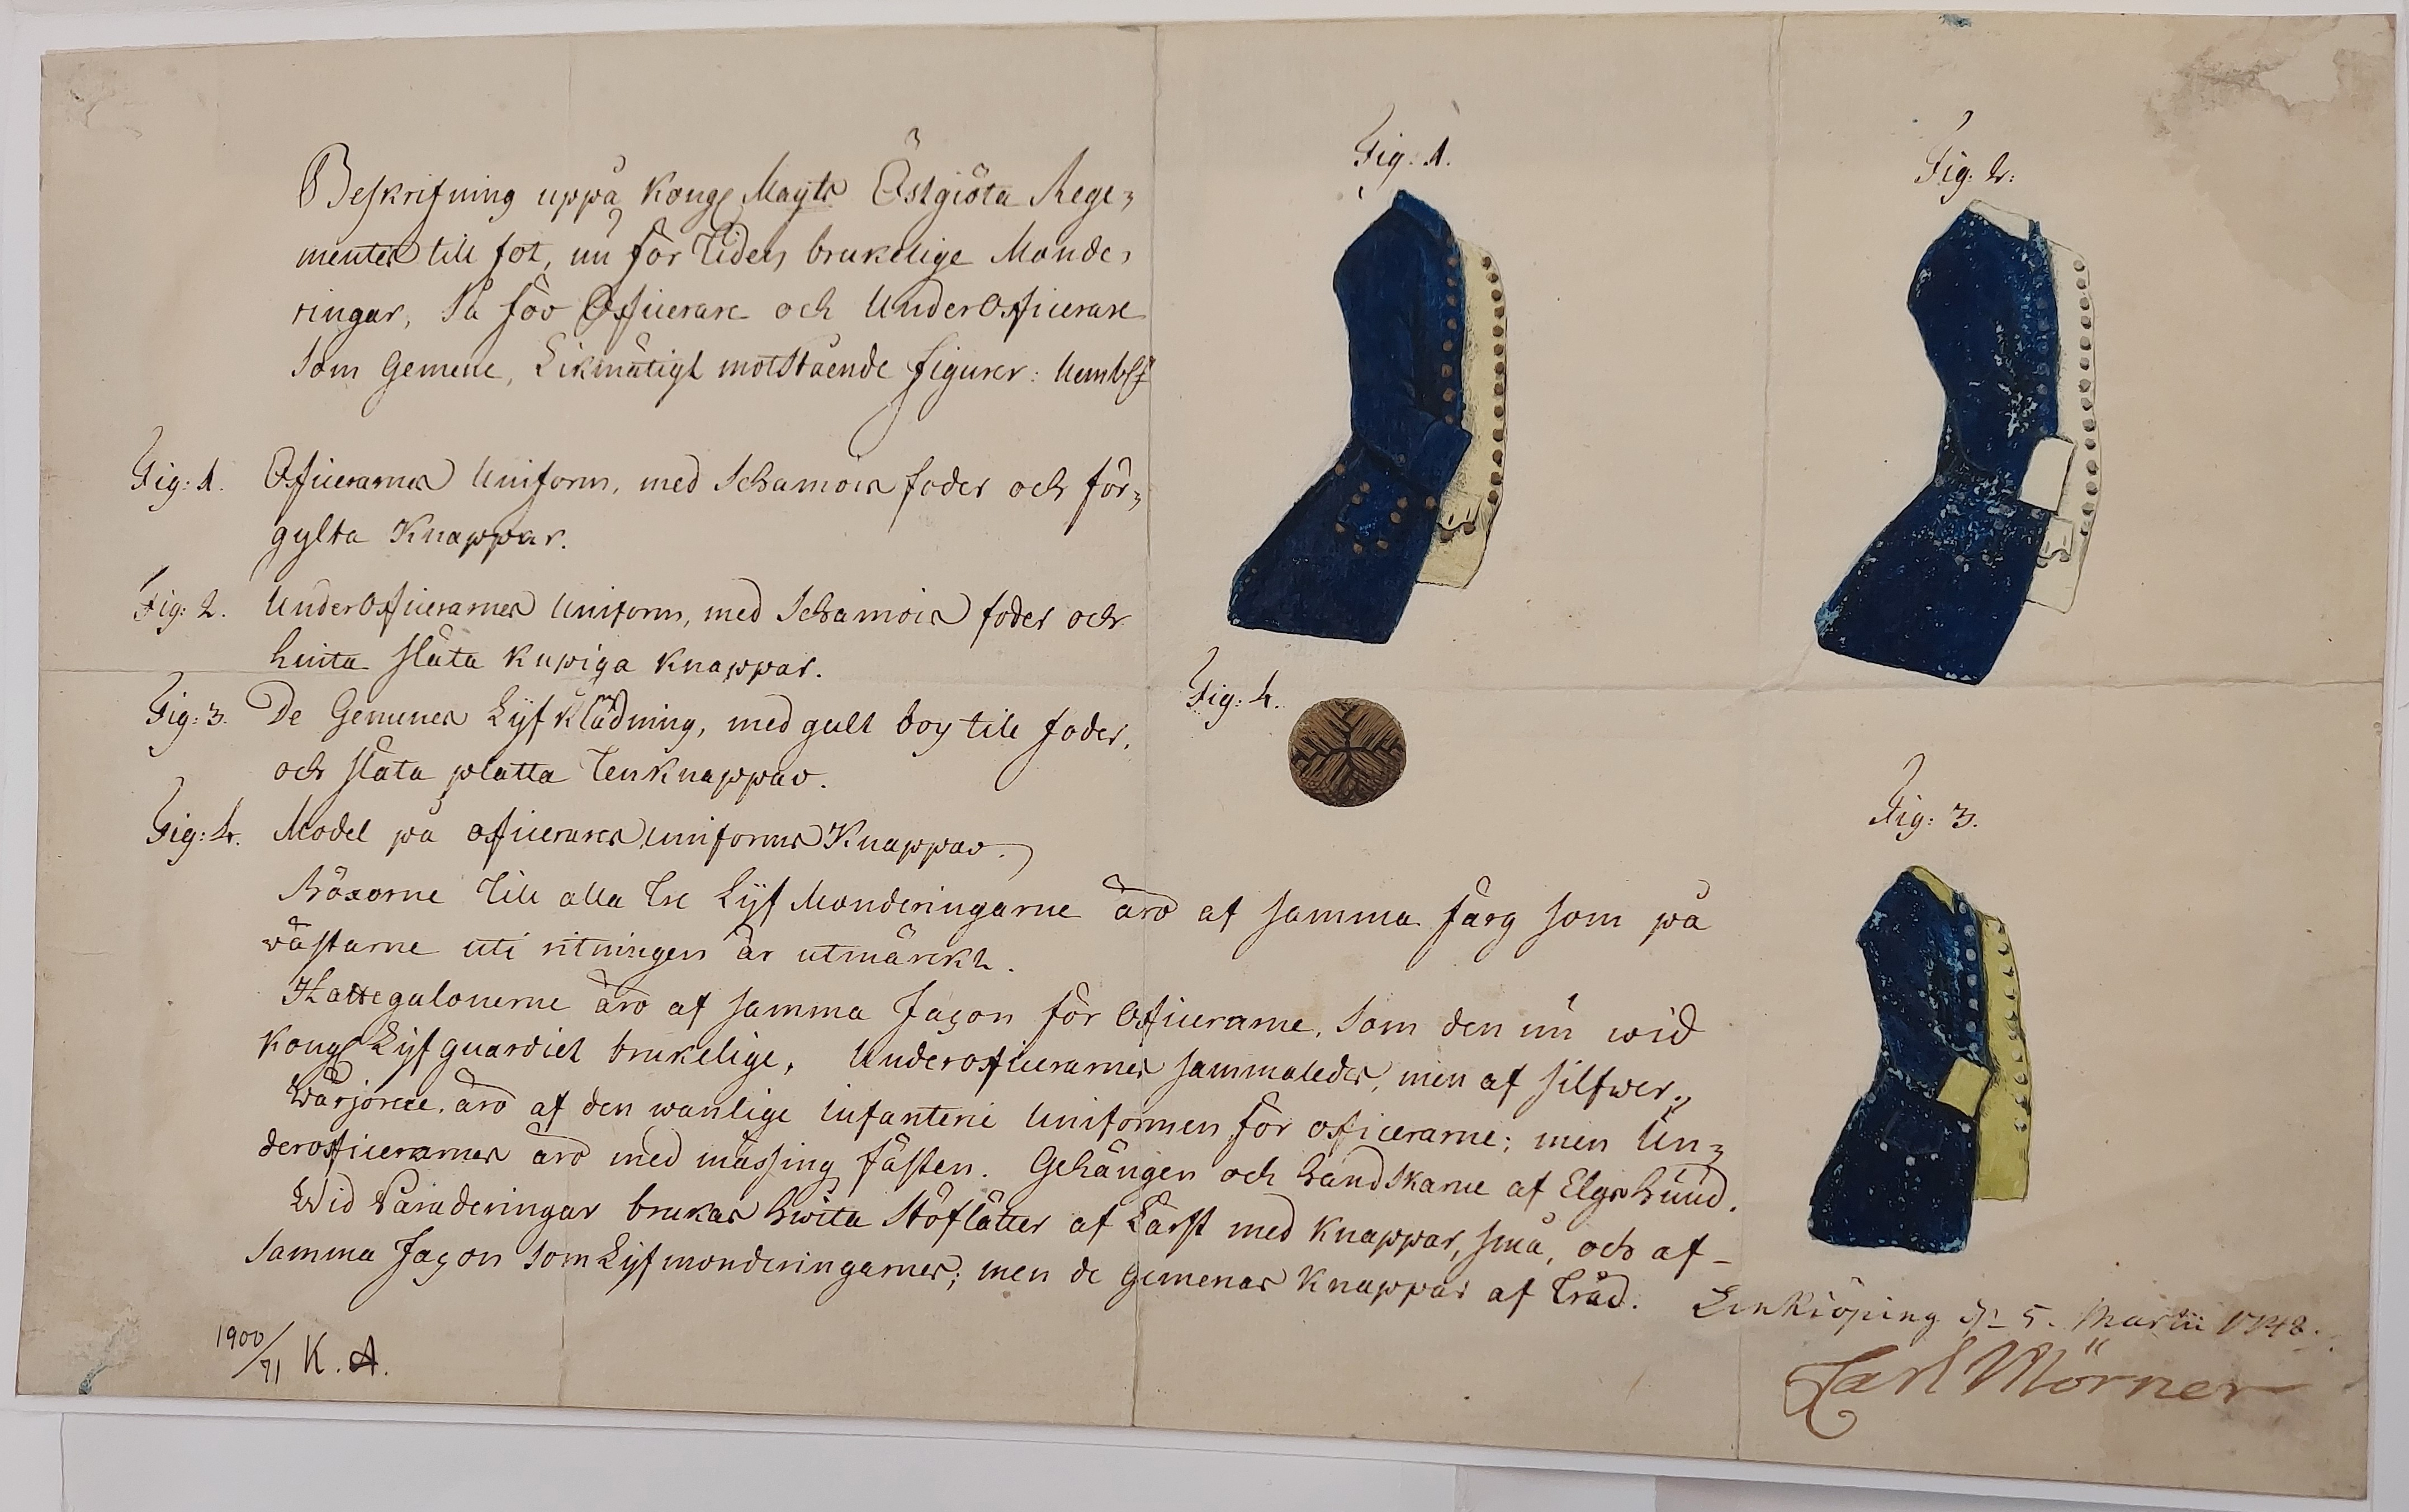 Beskrifning uppå Kongl Mayts Östgiöta Rege-
mentes till fot, nu för tiden brukelige Monde-
ringar, Så för Officerare och UnderOfficerare
Som Gemene, Likmätigt motstående figurer:
Fig: 1. Officerarnes Uniform, med Schamois foder och för-
gylta Knappar.
Fig: 2. UnderOfficerarnes Uniform, med Schamois foder och
hvita släta kupiga knappar.
Fig: 3. De Gemenes Lijfklädning, med gult boy till foder,
och släta platta Tenknappar.
Fig: 4. Model på officerares uniforms Knappar.
Böxorne till alla tre Lijf Monderingarne äro af samma färg som på
västarne uti ritningen är utmärckt.
Hattegalonerne äro af samma Façon för Officerarne, Som den nu wid
Kongl Lijfguardiet brukelige, Underofficerarnes sammaledes, men af silfwer.
Wärjorne äro af den wanlige Infanterie Uniformen för officerarne; men Un-
derofficerarnes äro med mässing fästen. Gehängen och handskarne af Elgshuud.
Wid Paraderingar brukas hwita Stöfletter af Lärft med knappar, små, och af
samma Façon som Lijfmonderingarnes; men de gemenas knappar af Träd.
Linkiöping d. 5. Martii 1748.
Carl Mörner
1900/71 K.A.
Fig: 1.
Fig: 2:
Fig: 4.
Fig: 3.